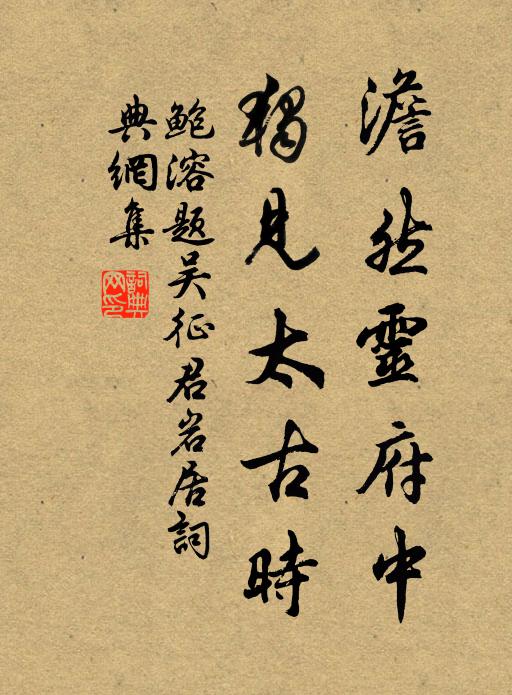 澹然靈府中
獨見太古時
鮑溶題吴征君岩居詞
典網集
詞典网印